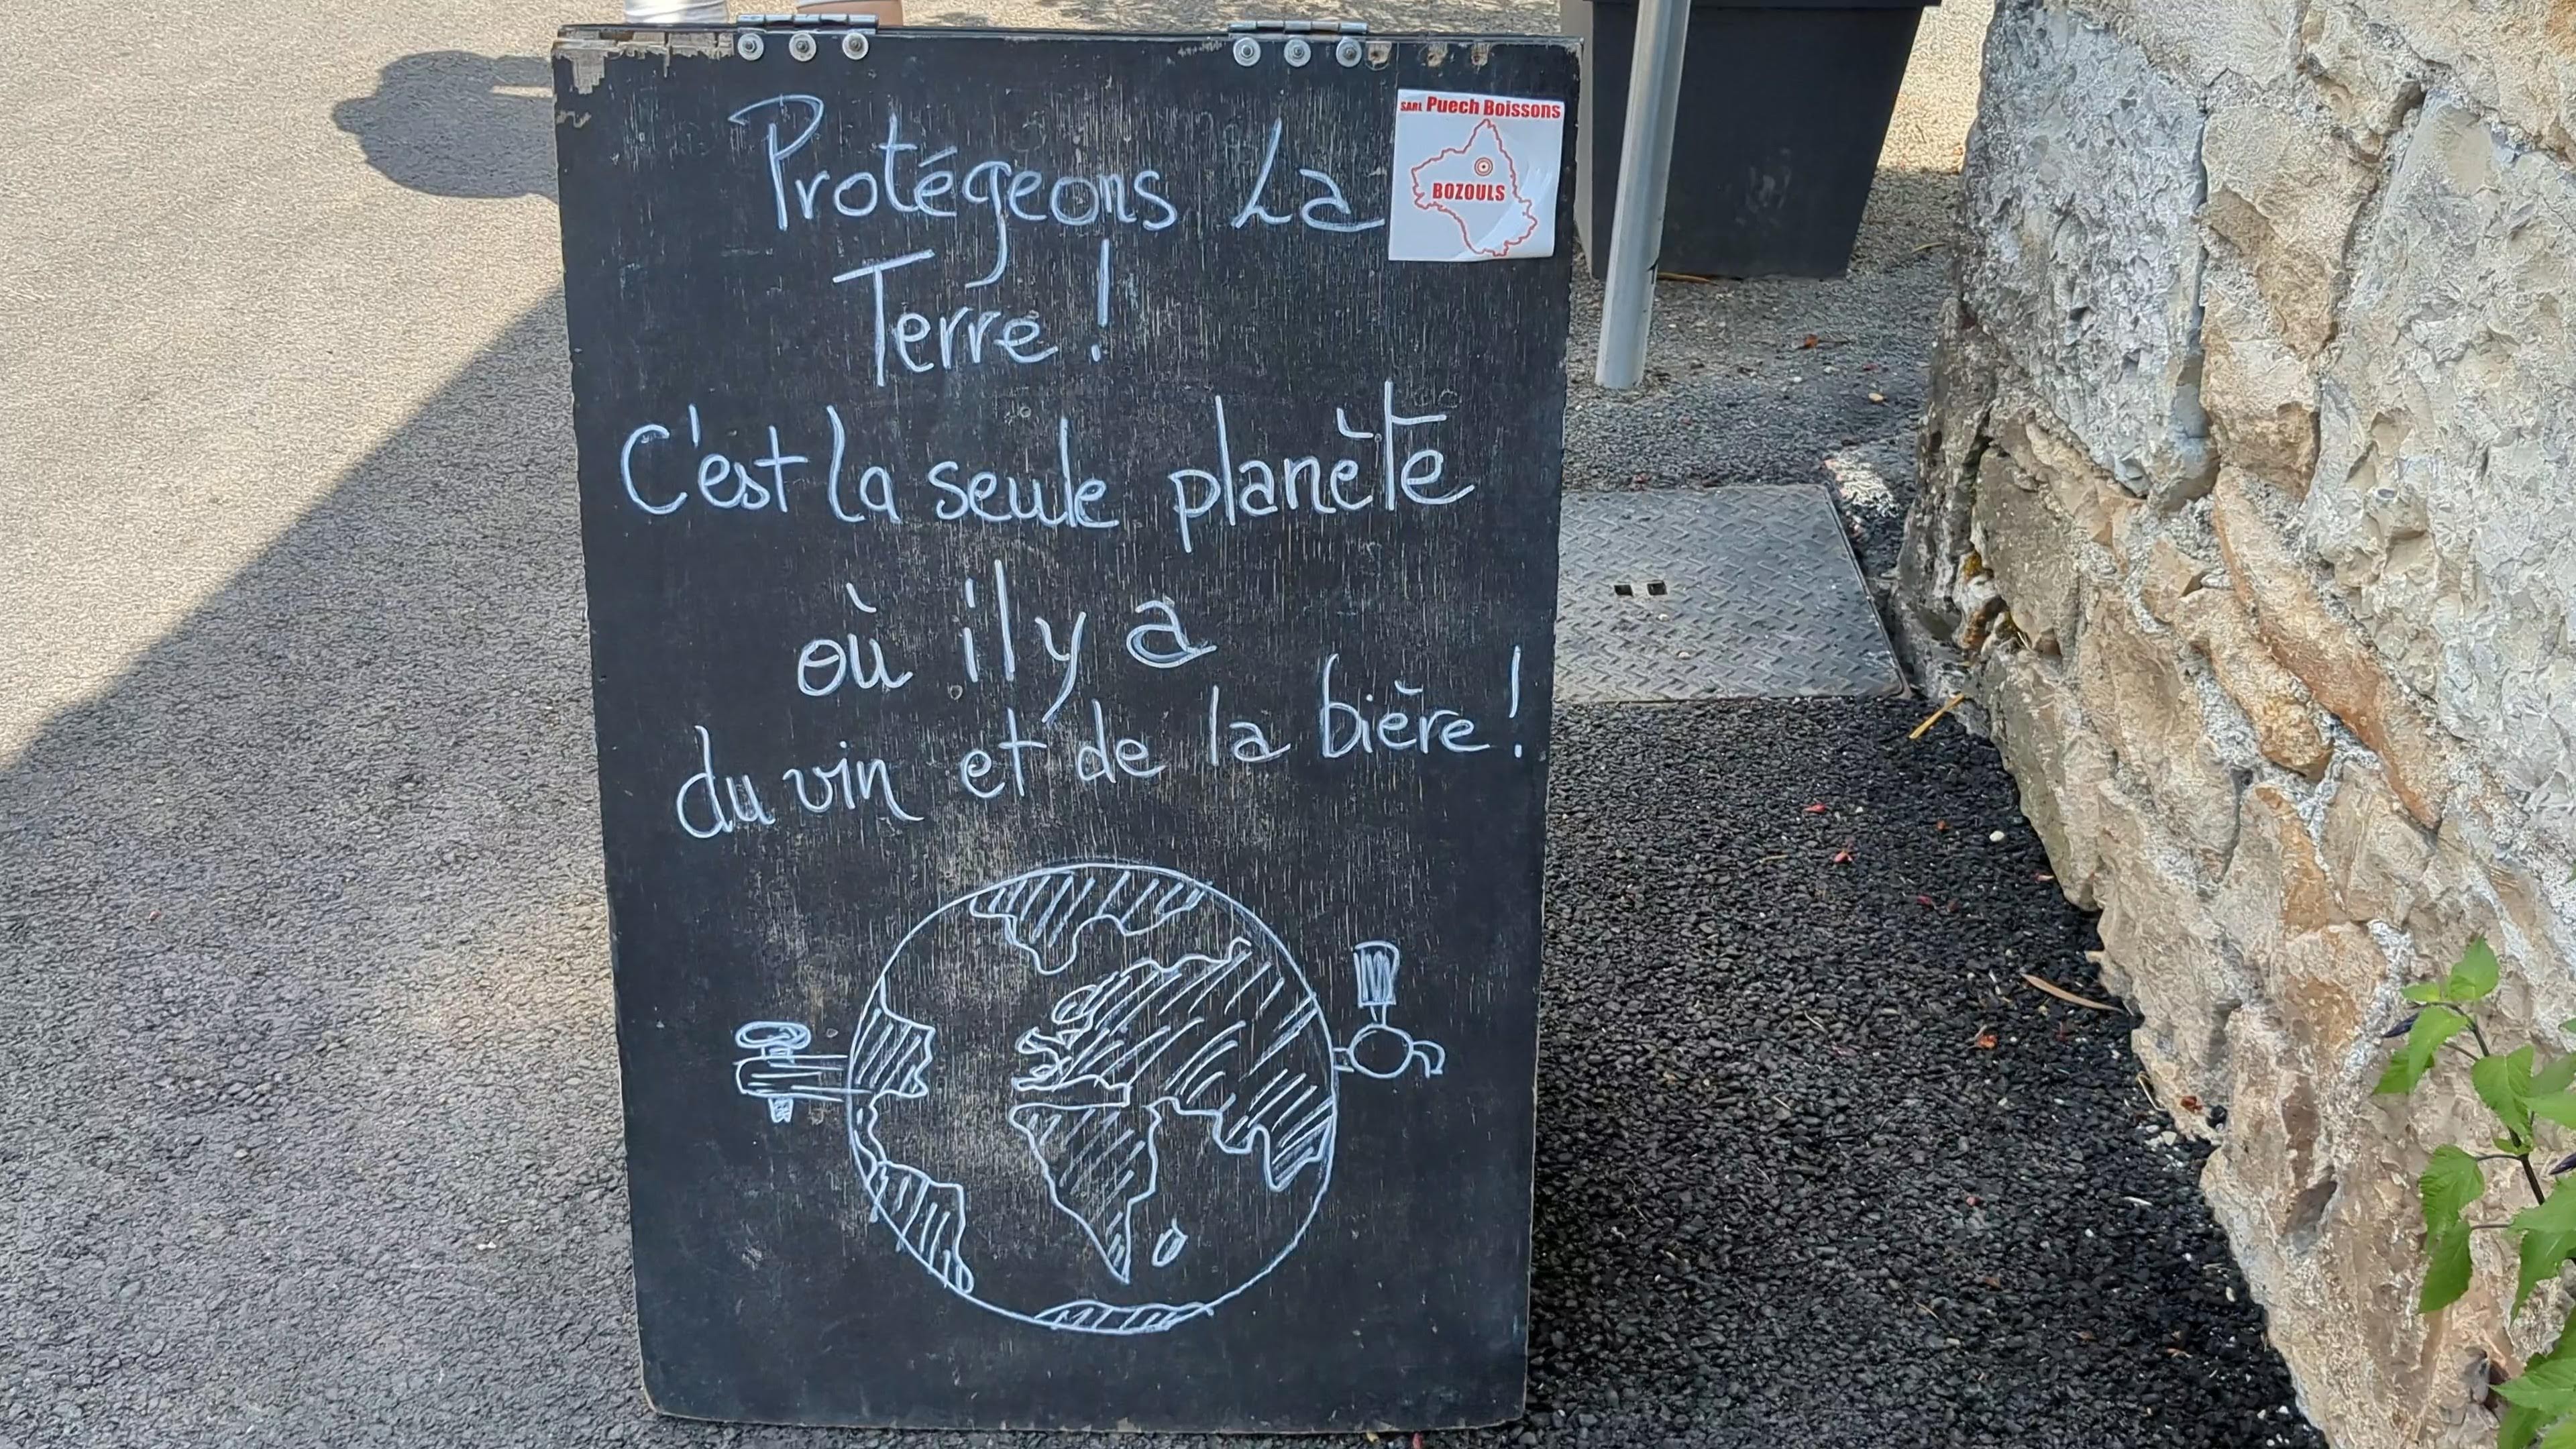 Protégeons La
Terre !
C'est la seule planète
où il y a
du vin et de la bière !
SARL Puech Boissons
BOZOULS